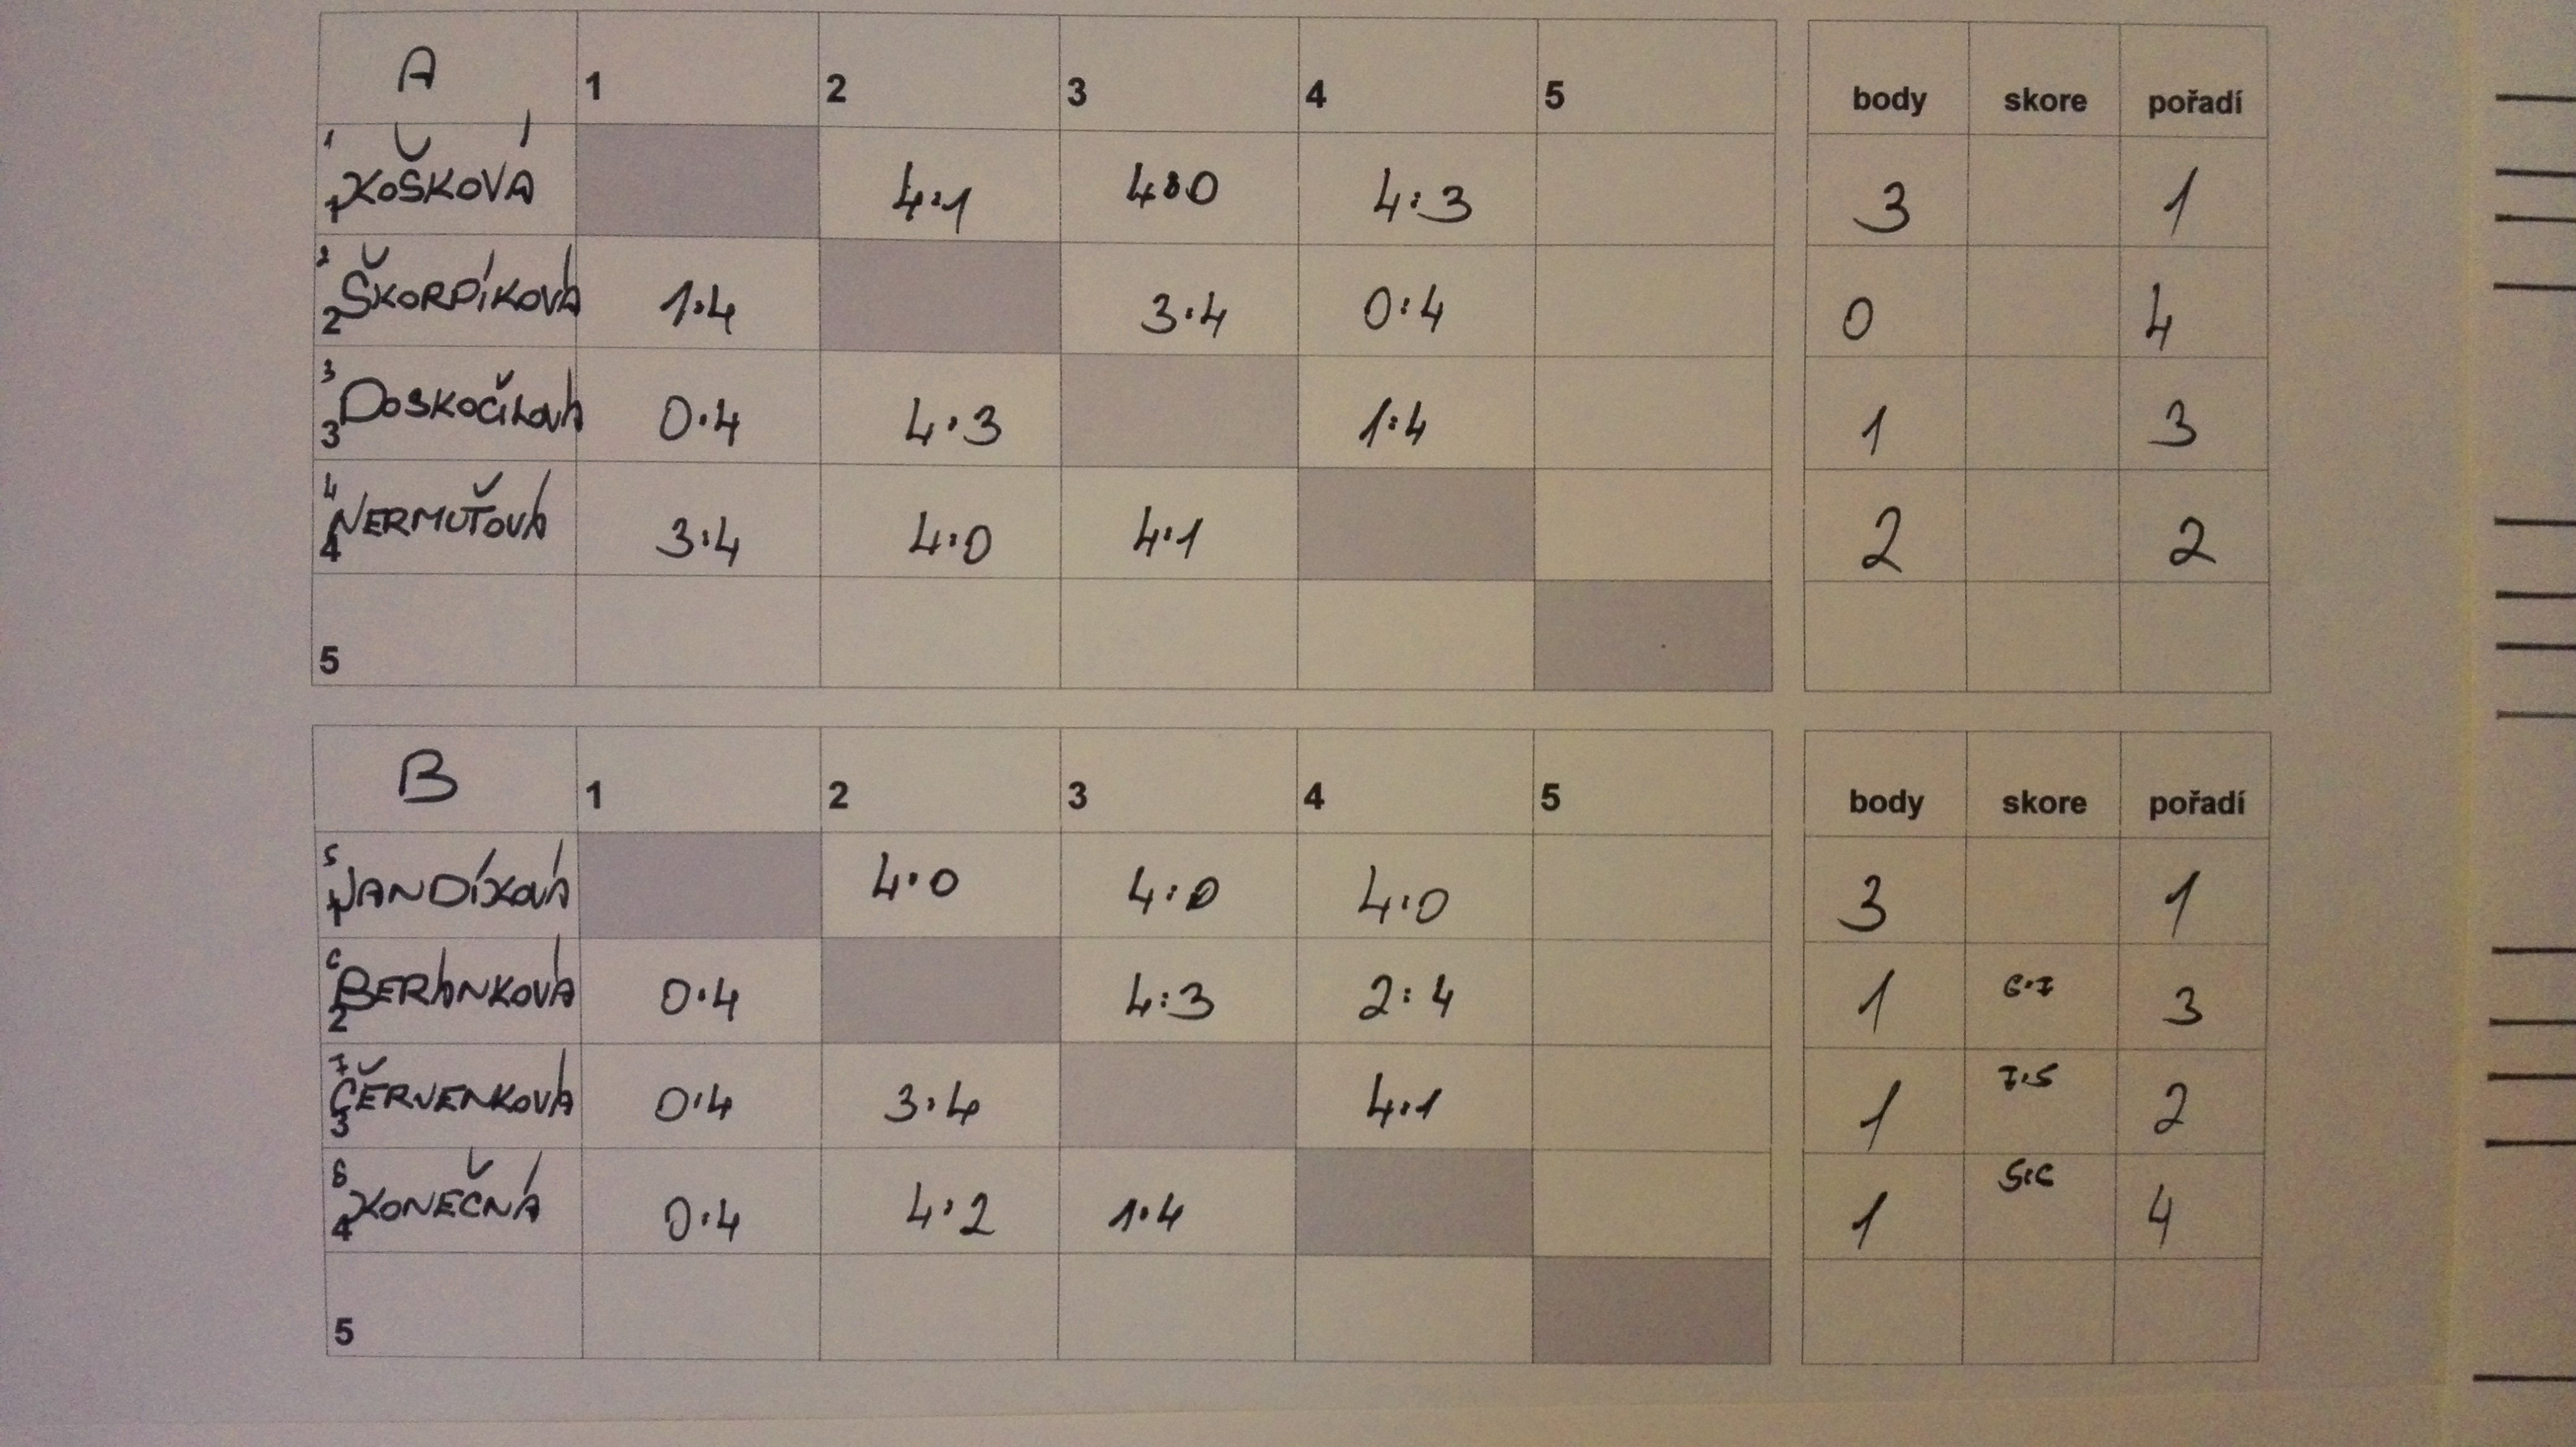 A 1 2 3 4 5 body skore pořadí
1 1 KOŠKOVÁ 4:1 4:0 4:3 3 1
2 2 ŠKORPÍKOVÁ 1:4 3:4 0:4 0 4
3 3 DOSKOČILOVÁ 0:4 4:3 1:4 1 3
4 4 NERMUŤOVÁ 3:4 4:0 4:1 2 2
5
B 1 2 3 4 5 body skore pořadí
5 1 JANDÍKOVÁ 4:0 4:0 4:0 3 1
6 2 BERÁNKOVÁ 0:4 4:3 2:4 1 6:7 3
7 3 ČERVENKOVÁ 0:4 3:4 4:1 1 7:5 2
8 4 KONEČNÁ 0:4 4:2 1:4 1 5:6 4
5